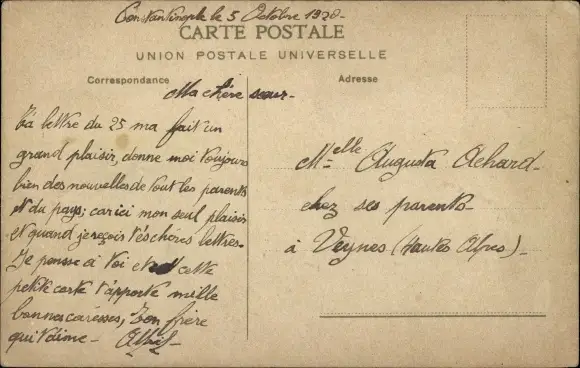 Constantinople le 5 Octobre 1920-
CARTE POSTALE
UNION POSTALE UNIVERSELLE
Correspondance
Adresse
Ma chère sœur-
Ta lettre du 25 ma fait un
grand plaisir, donne moi toujours
bien des nouvelles de tout les parents
et du pays; car ici mon seul plaisir
et quand je reçois tes chères lettres-
Je pense a toi et cette
petite carte t'apporte mille
bonnes caresses, Ton frère
qui t'aime-
Melle Augusta Achard-
chez ses parents-
à Veynes (Hautes Alpes)-